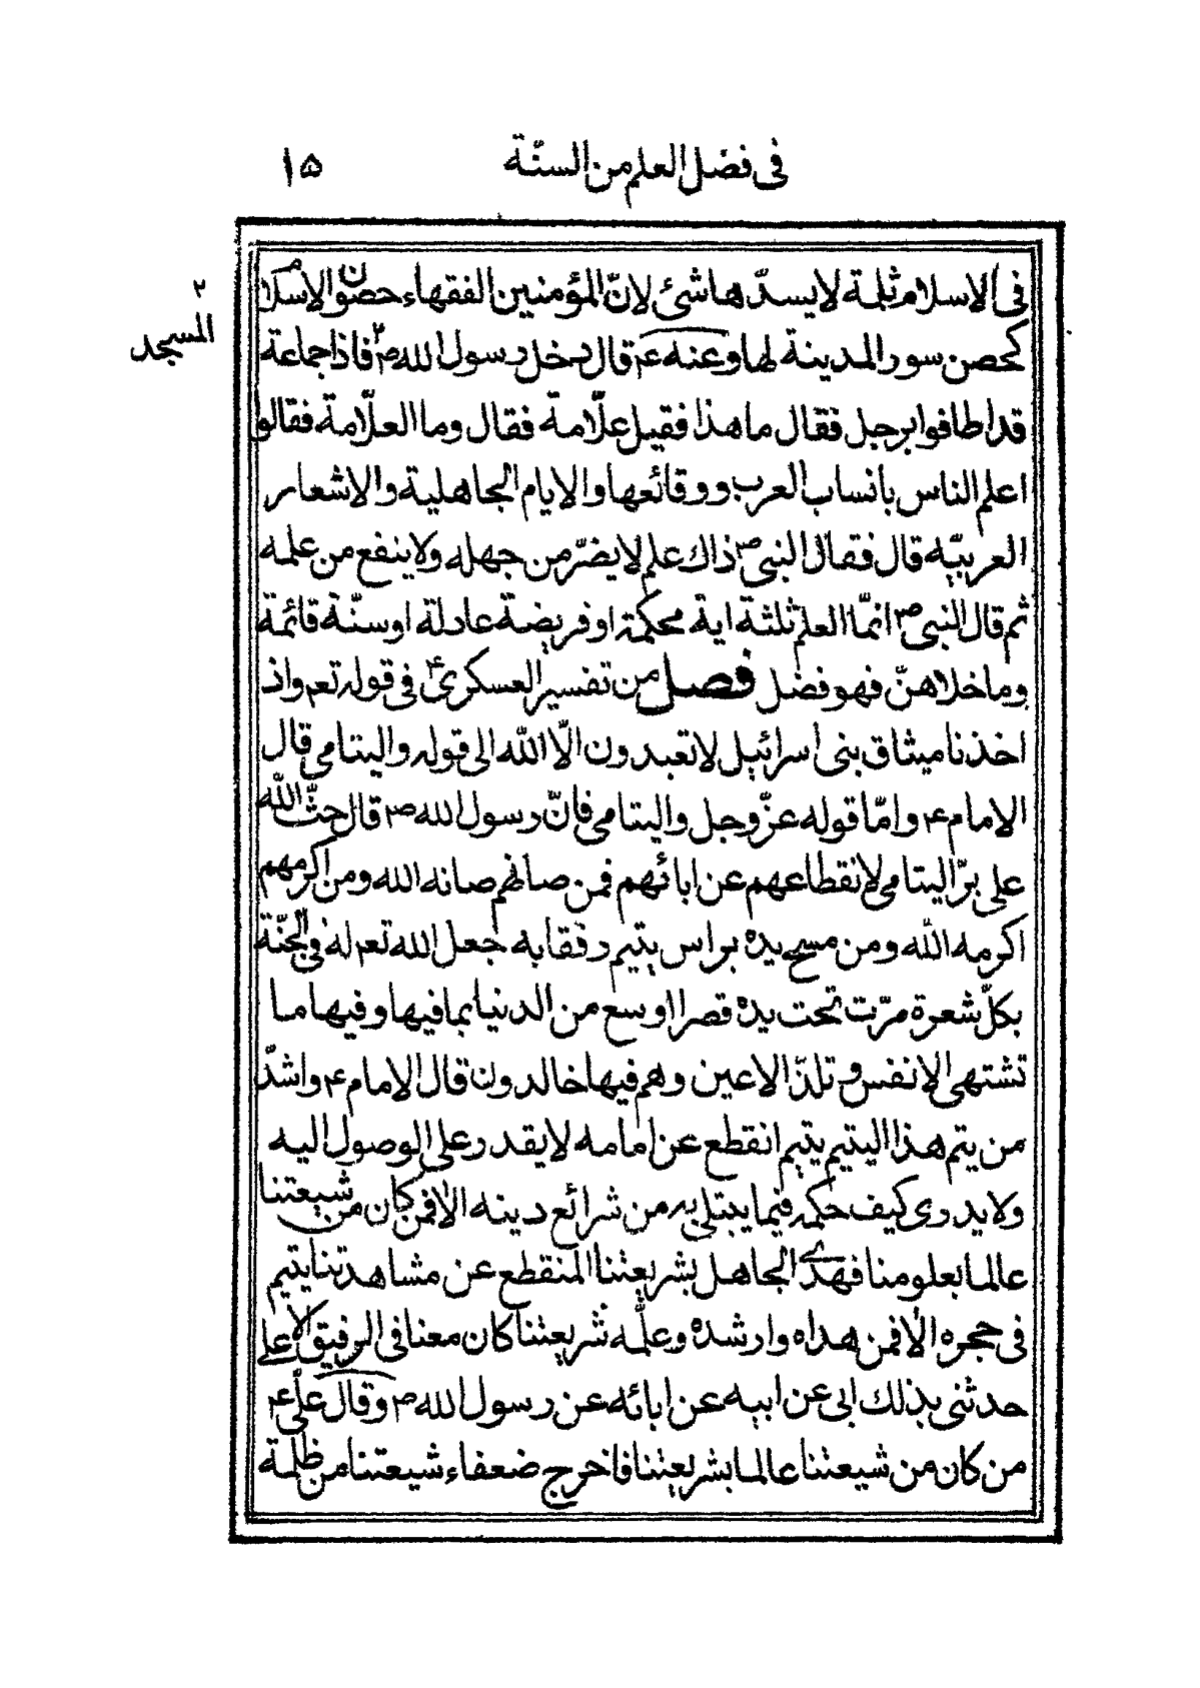 فى فضل العلم من السنّة
١۵
فى الاسلام ثلمة لا يسدّها شئ لانّ المؤمنين الفقهاء حصون الاسلام
كحصن سور المدينة لها وعنه ع قال دخل رسول الله ص٢ فاذا جماعة
قد اطافوا برجل فقال ما هذا فقيل علّامة فقال وما العلّامة فقالوا
اعلم الناس بانساب العرب ووقائعها والايام الجاهلية والاشعار
العربيّه قال فقال النبى ص ذاك علم لا يضرّ من جهله ولا ينفع من علمه
ثم قال النبى ص انّما العلم ثلثة اية محكمة او فريضة عادلة او سنّة قائمة
وما خلاهنّ فهو فضل فصل من تفسير العسكرى ع فى قوله تعم واذ
اخذنا ميثاق بنى اسرائيل لا تعبدون الّا الله الى قوله واليتامى قال
الامام ع وامّا قوله عزّ وجل واليتامى فانّ رسول الله ص قال حثّ الله
على برّ اليتامى لانقطاعهم عن ابائهم فمن صانهم صانه الله ومن اكرمهم
اكرمه الله ومن مسح يده براس يتيم رفقا به جعل الله تعم له فى الجنّة
بكلّ شعرة مرّت تحت يده قصرا اوسع من الدنيا بما فيها وفيها ما
تشتهى الانفس وتلذّ الاعين وهم فيها خالدون قال الامام ع واشدّ
من يتم هذا اليتيم يتيم انقطع عن امامه لا يقدر على الوصول اليه
ولا يدرى كيف حكمه فيما يبتلى به من شرائع دينه الا فمن كان من شيعتنا
عالما بعلومنا فهدى الجاهل بشريعتنا المنقطع عن مشاهدتنا يتيم
فى حجره الا فمن هداه وارشده وعلّمه شريعتنا كان معنا فى الرفيق الاعلى
حدثنى بذلك ابى عن ابيه عن ابائه عن رسول الله ص وقال علّى ع
من كان من شيعتنا عالما بشريعتنا فاخرج ضعفاء شيعتنا من ظلمة
٢
المسجد